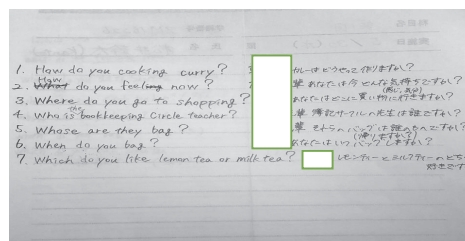 1. How do you cooking curry? カレーはどうやって作りますか?
2. What How do you feeling now? 輩 あなたは今どんな気持ちですか?
(感じ、気分)
3. Where do you go to shopping? あなたはどこに買い物に行きますか?
4. Who is the bookkeeping Circle teacher? 輩 簿記サークルの先生は誰ですか?
5. Whose are they bag? 輩 それらのバッグは誰のものですか?
6. When do you bag? あなたはいつバッグしますか?
7. Which do you like lemon tea or milk tea? レモンティーとミルクティーのどち
好きです